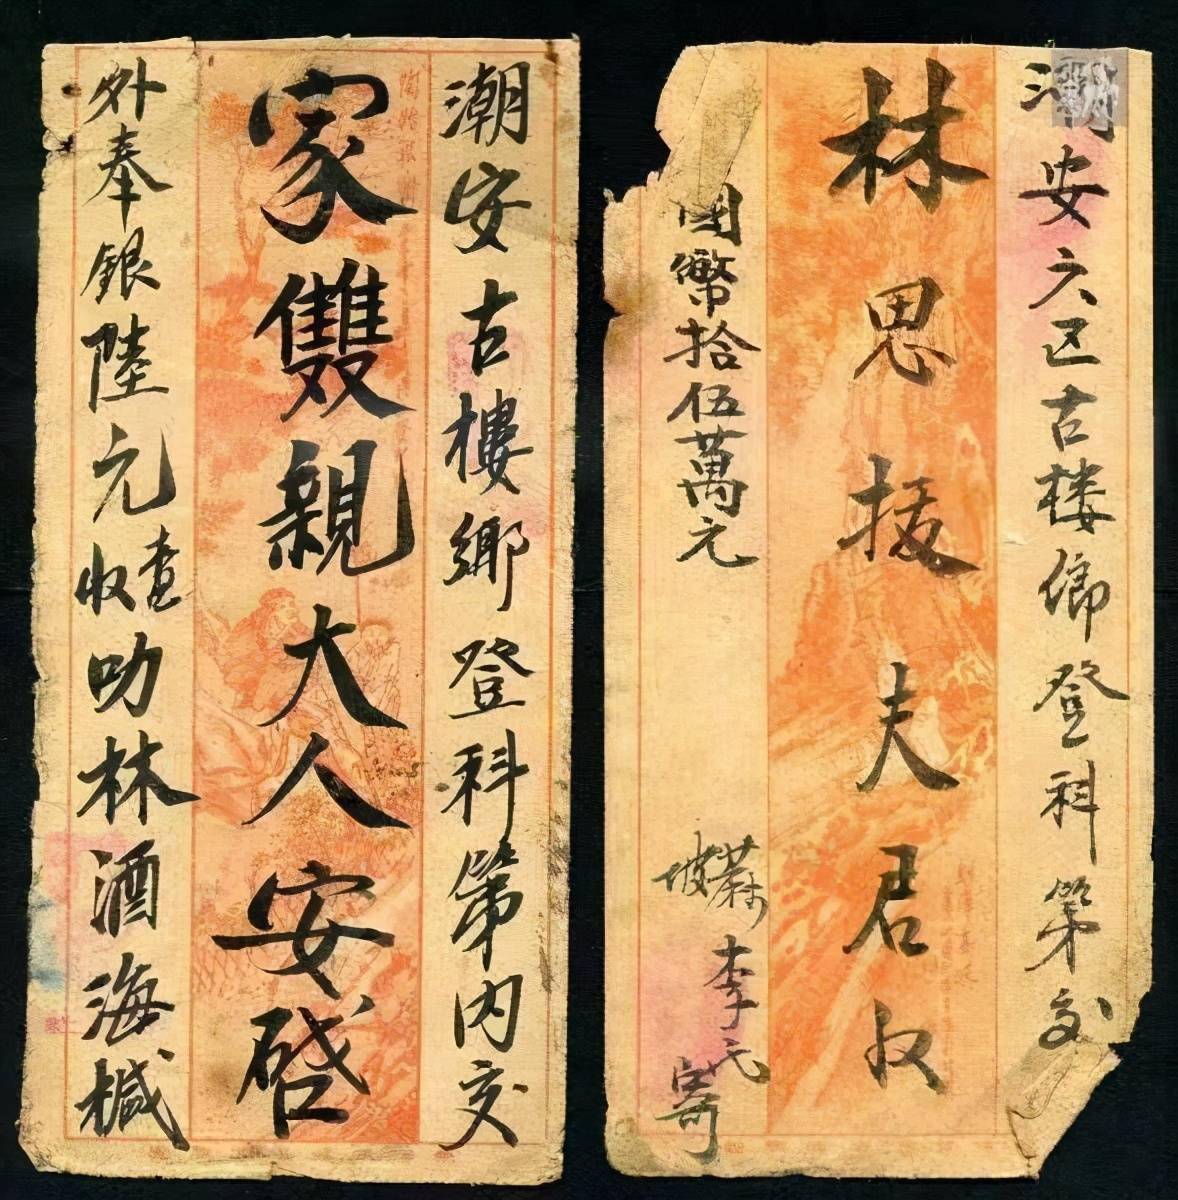 潮安古樓鄉登科第內交
家雙親大人安啓
外奉銀陸元查收叻林酒海槭
安六区古楼鄉登科第交
林思援夫君收
國幣拾伍萬元
坡蔴李氏寄